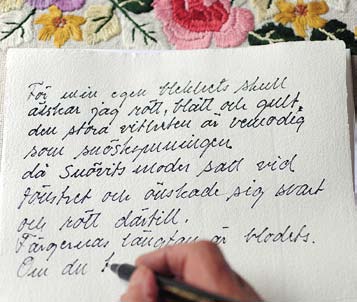 För min egen blekhets skull
älskar jag rött, blått och gult,
den stora vitheten är vemodig
som snöskymningen
då Snövits moder satt vid
fönstret och önskade sig svart
och rött därtill.
Färgernas längtan är blodets.
Om du